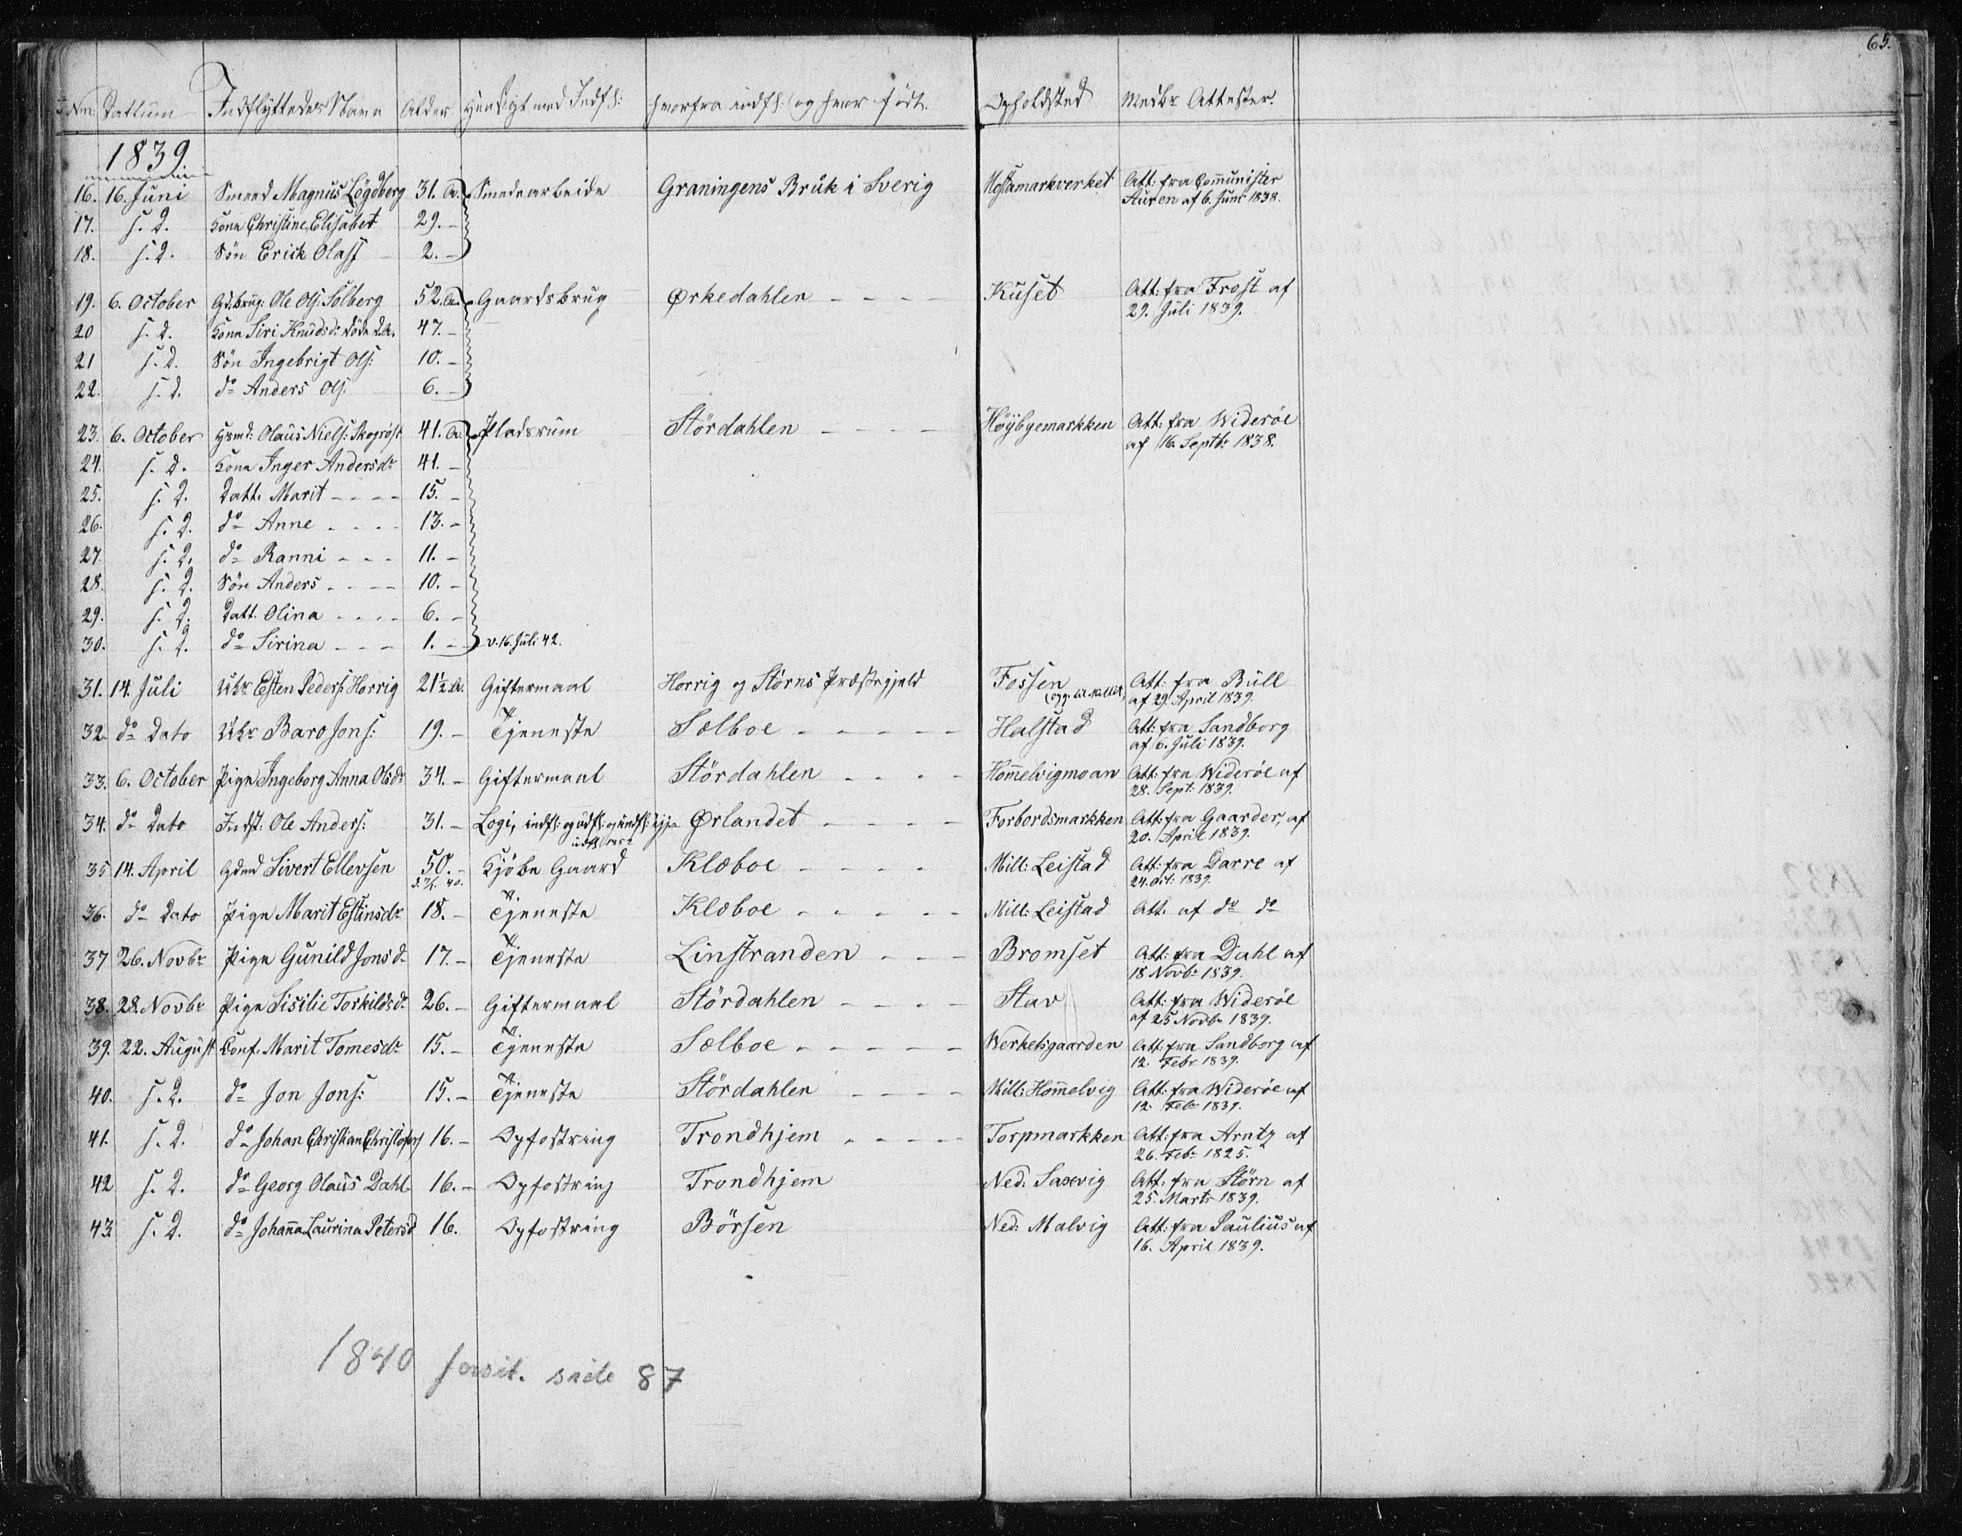 65.
Dattum Indflyttedes Navn Alder Hensigt med Indfl: hvorfra indfl: og hvor født. Opholdsted Medbr Attester.
1839.
16. 16. Juni Smeed Magnus Lögdberg 31. A. Smedearbeide Graningens Bruk i Sverig Mostamarkverket Att: fra Comunister
Sturen af 6. Juni 1838.
17. s. D. Kona Christine Elisabet 29. -
18. s. D. Søn Erick Olaff - 2. -
19. 6. October Gdbrug: Ole Ols: Solberg 52. A. Gaardsbrug Ørkedahlen - - - - Kuset Att: fra Frost af
29. Juli 1839.
20 s. D. Kona Siri Knudsdr 47. -
21 s. D. Søn Ingebrigt Ols: 10. -
22. s. D. do Anders Ols. 6. -
23. 6. October Hsmd: Olaus Niels: 41. A. Pladsrum Stördahlen - - - - Höybyemarkken Att: fra Wideröe
af 16. Septbr 1838.
24. s. D. Kona Inger Andersdr 41. -
25. s. D. Datt. Marit - - - - 15. -
26. s. D. do Anne - - - - 13. -
27. s. D. do Ranni - - - 11. -
28. s. D. Søn Anders - - - - 10. -
29. s. D. Datt. Olina - - - - 6. -
30. s. D. do Sirina - - - 1. - v. 16. Juli 42.
31. 14. Juli Ukr Esten Peders: Horrig 21½ A. Giftermaal Horrig og Störns Præstegjeld Fossen Att: fra Bull
af 29. April 1839.
32. do Dato Ukr Baro Jons: 19. - Tjeneste Sælboe - - - - - Halstad Att: fra Sandborg
af 6. Juli 1839.
33. 6. October Pige Ingeborg Anna Olsdr 34. - Giftermaal Stördahlen - - - - Hommelvigmoan Att: fra Wideröe af
28. Sept: 1839.
34. do Dato Indst: Ole Anders: 31. - Logi, indfl: og udfl: og indfl: Ørlandet - - - - Forbordsmarkken Att: fra Gaarder, af
20. April 1839.
35 14. April Gdmd Sivert Ellevsen 50. - Kjöbe Gaard Klæboe - - - - Mill: Leistad Att: fra Darre af
24. 1839.
36. do Dato Pige Marit Estinsdr 18. - Tjeneste Klæboe - - - - - Mill: Leistad Att. af do do
37 26. Novbr Pige Gunild Jonsd. 17. - Tjeneste Linstranden - - - Bromset Att: fra Dahl af
18 Novbr 1839.
38. 28. Novbr Pige Sisilie Torkildsdr 26. - Giftermaal Stördahlen - - - - Stav Att: fra Wideröe
af 25 Novbr 1839.
39. 22. August Conf: Marit Tomesdr 15. - Tjeneste Sælboe - - - - - Werketsgaarden Att: fra Sandborg af
12. Febr 1839.
40. s. D. do Jon Jons: 15. - Tjeneste Stördahlen - - - - Mill: Hommelvig Att: fra Widerøe af
12. Febr 1839.
41. s. D. do Johan Christian Christofers 16. - Opfostring Trondhjem - - - - Torpmarkken Att: fra Arntz af
26. Febr 1825.
42 s. D. do Georg Olaus Dahl 16. - Opfostring Trondhjem Ned. Saxevig Att: fra Störn af
25. Marts 1839.
43. s. D. do Johanna Laurina Petersd 16. Opfostring Börsen Ned: Malvig Att: fra Paulius af
16. April 1839.
1840 forsit. side 87